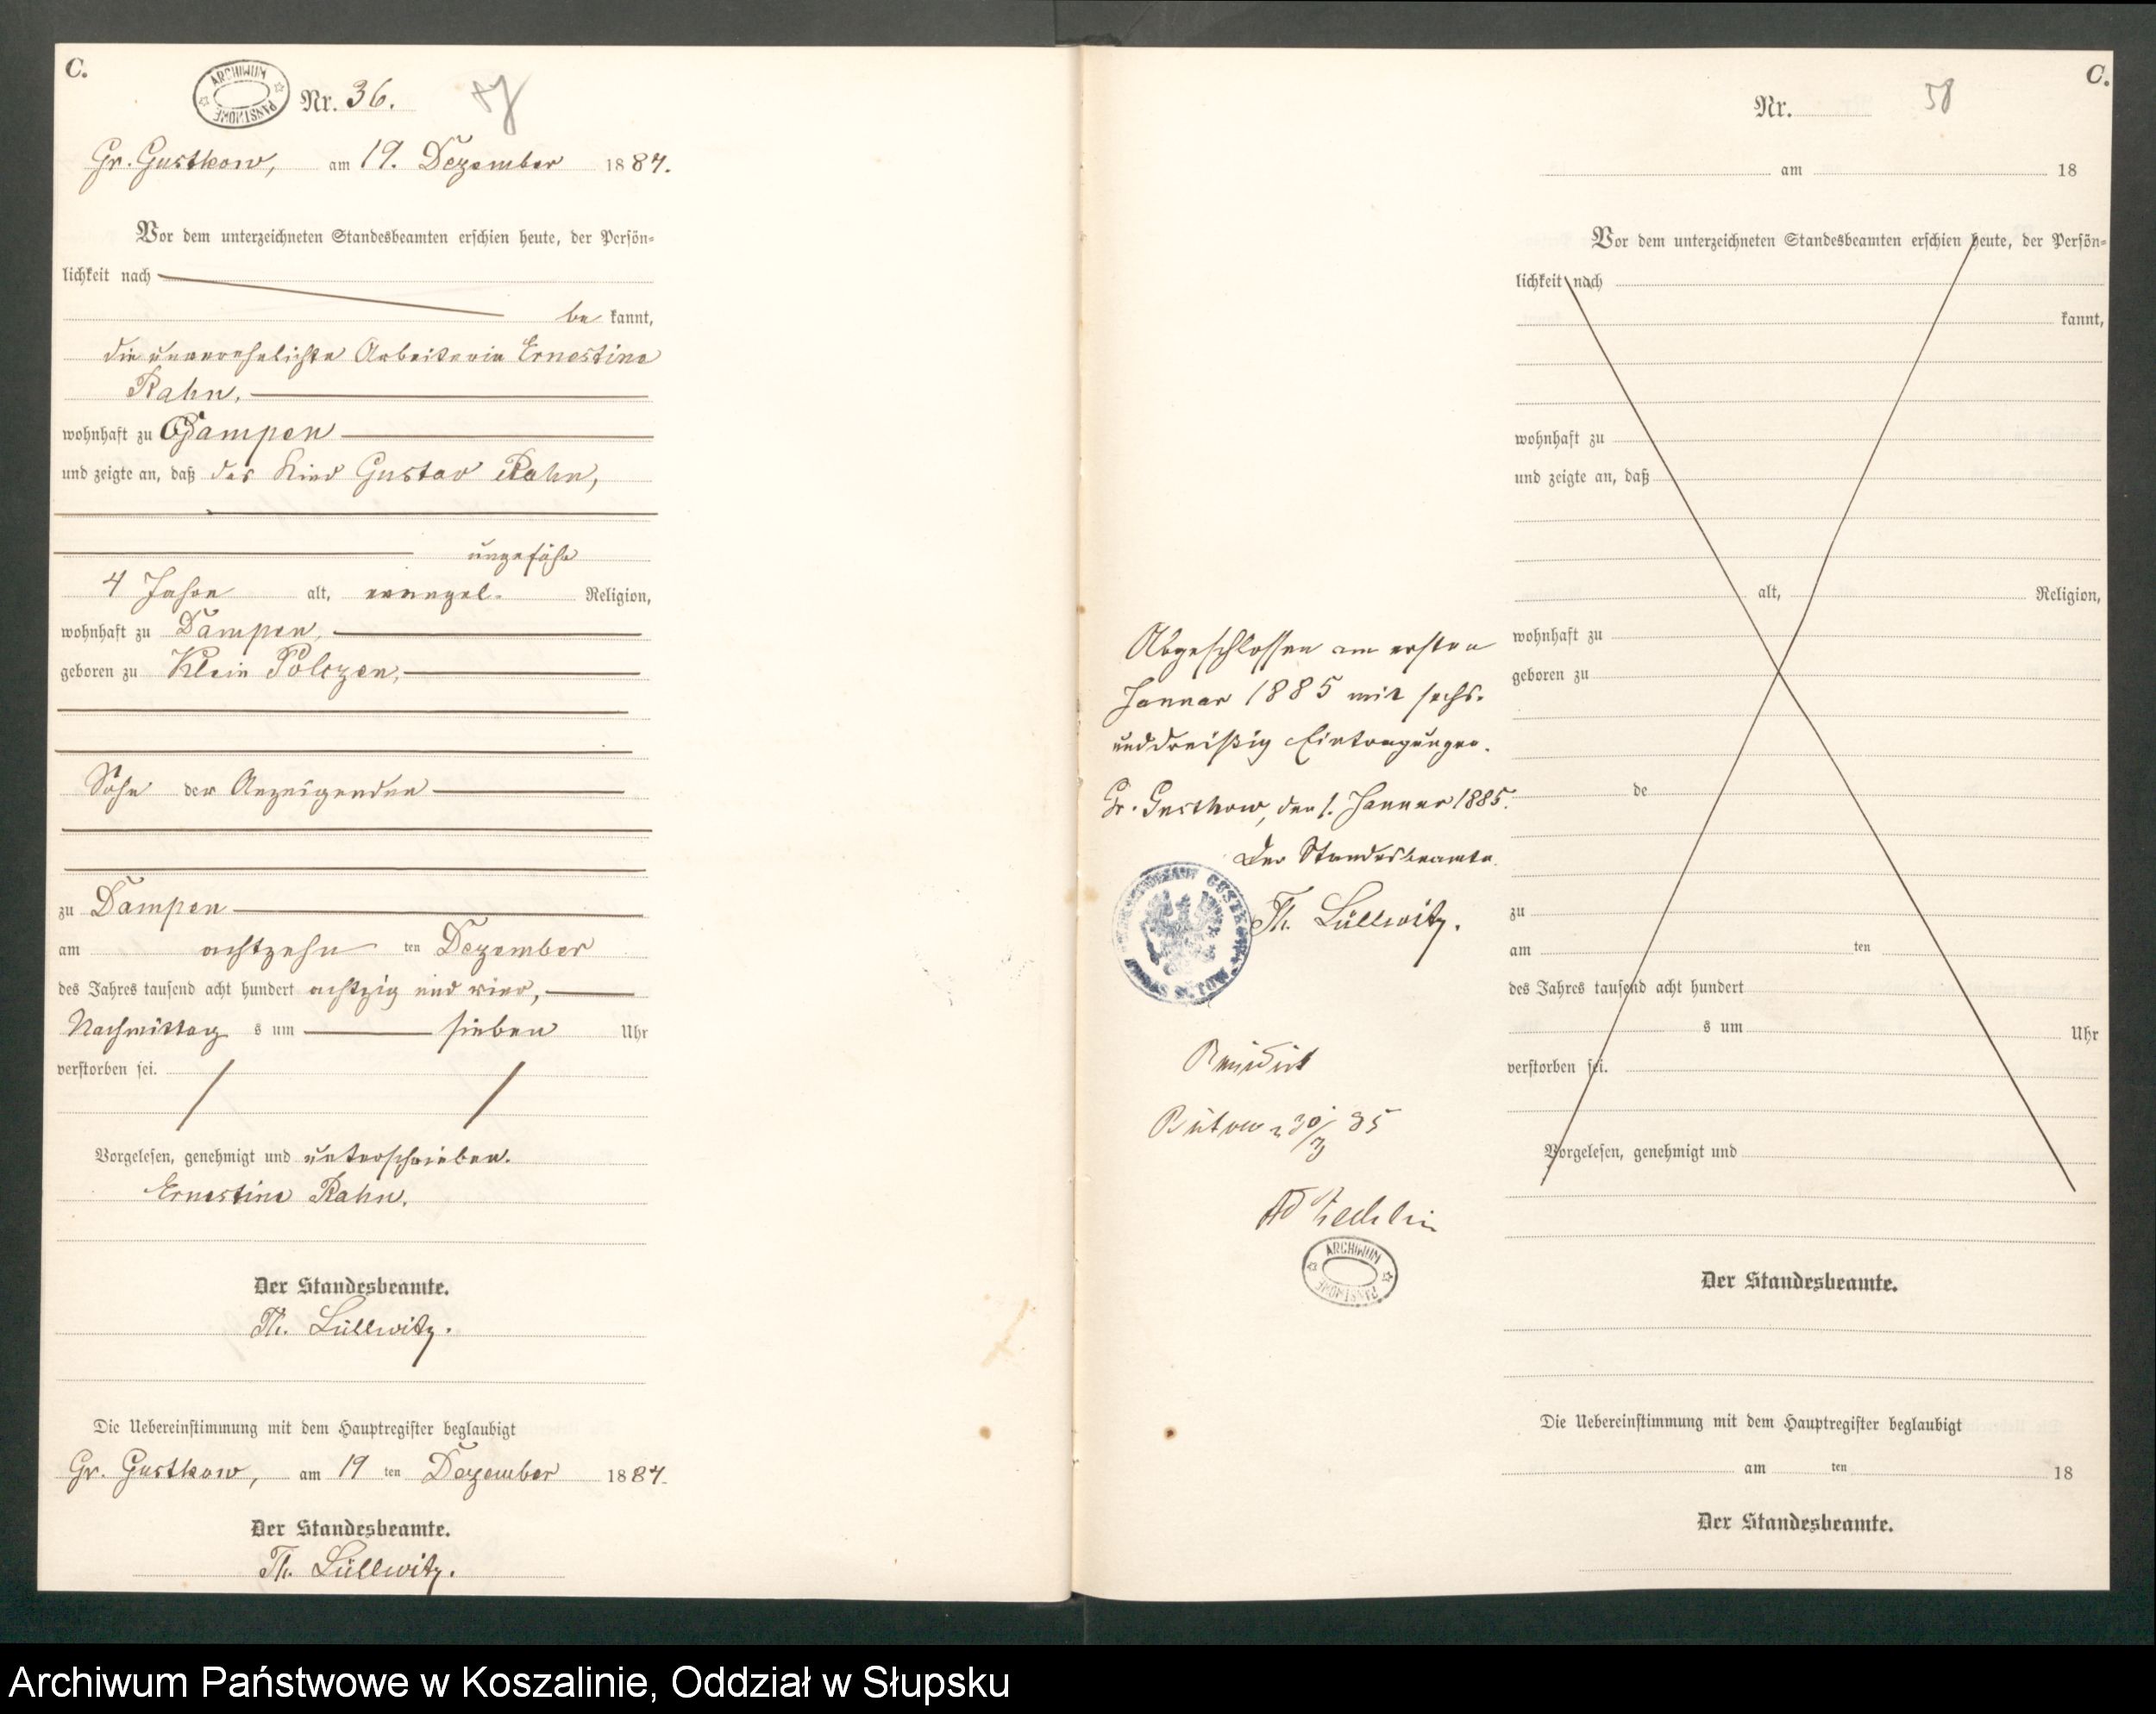 C.
ARCHIWUM PAŃSTWOWE
Nr. 36.
57
Gr. Gustkow, am 19. Dezember 1884.
Vor dem unterzeichneten Standesbeamten erschien heute, der Persön-
lichkeit nach
be kannt,
die unverehelichte Arbeiterin Ernestine
Rahn,
wohnhaft zu Dampen
und zeigte an, daß das Kind Gustav Rahn,
ungefähr
4 Jahre alt, evangel. Religion,
wohnhaft zu Dampen,
geboren zu Klein Polczen,
Sohn der Anzeigenden
zu Dampen
am achtzehn ten Dezember
des Jahres tausend acht hundert achtzig und vier,
Nachmittag s um sieben Uhr
verstorben sei.
Vorgelesen, genehmigt und unterschrieben.
Ernestine Rahn.
Der Standesbeamte.
Th. Lüllwitz.
Die Uebereinstimmung mit dem Hauptregister beglaubigt
Gr. Gustkow, am 19 ten Dezember 1884.
Der Standesbeamte.
Th. Lüllwitz.
Abgeschlossen am ersten
Januar 1885 mit sechs-
unddreißig Eintragungen.
Gr. Gustkow, den 1. Januar 1885.
Der Standesbeamte.
Th. Lüllwitz.
Revidirt
Bütow 30/3 85
ARCHIWUM PAŃSTWOWE
C.
Nr. 58
am 18
Vor dem unterzeichneten Standesbeamten erschien heute, der Persön-
lichkeit nach
kannt,
wohnhaft zu
und zeigte an, daß
alt, Religion,
wohnhaft zu
geboren zu
de
zu
am ten
des Jahres tausend acht hundert
s um Uhr
verstorben sei.
Vorgelesen, genehmigt und
Der Standesbeamte.
Die Uebereinstimmung mit dem Hauptregister beglaubigt
am ten 18
Der Standesbeamte.
Archiwum Państwowe w Koszalinie, Oddział w Słupsku